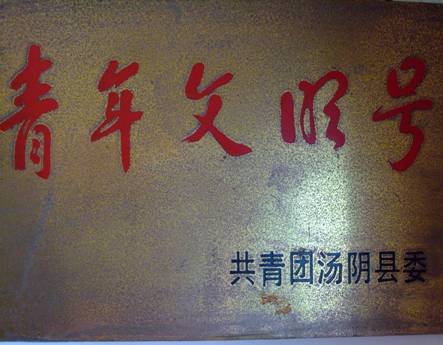 青年文明号
共青团汤阴县委